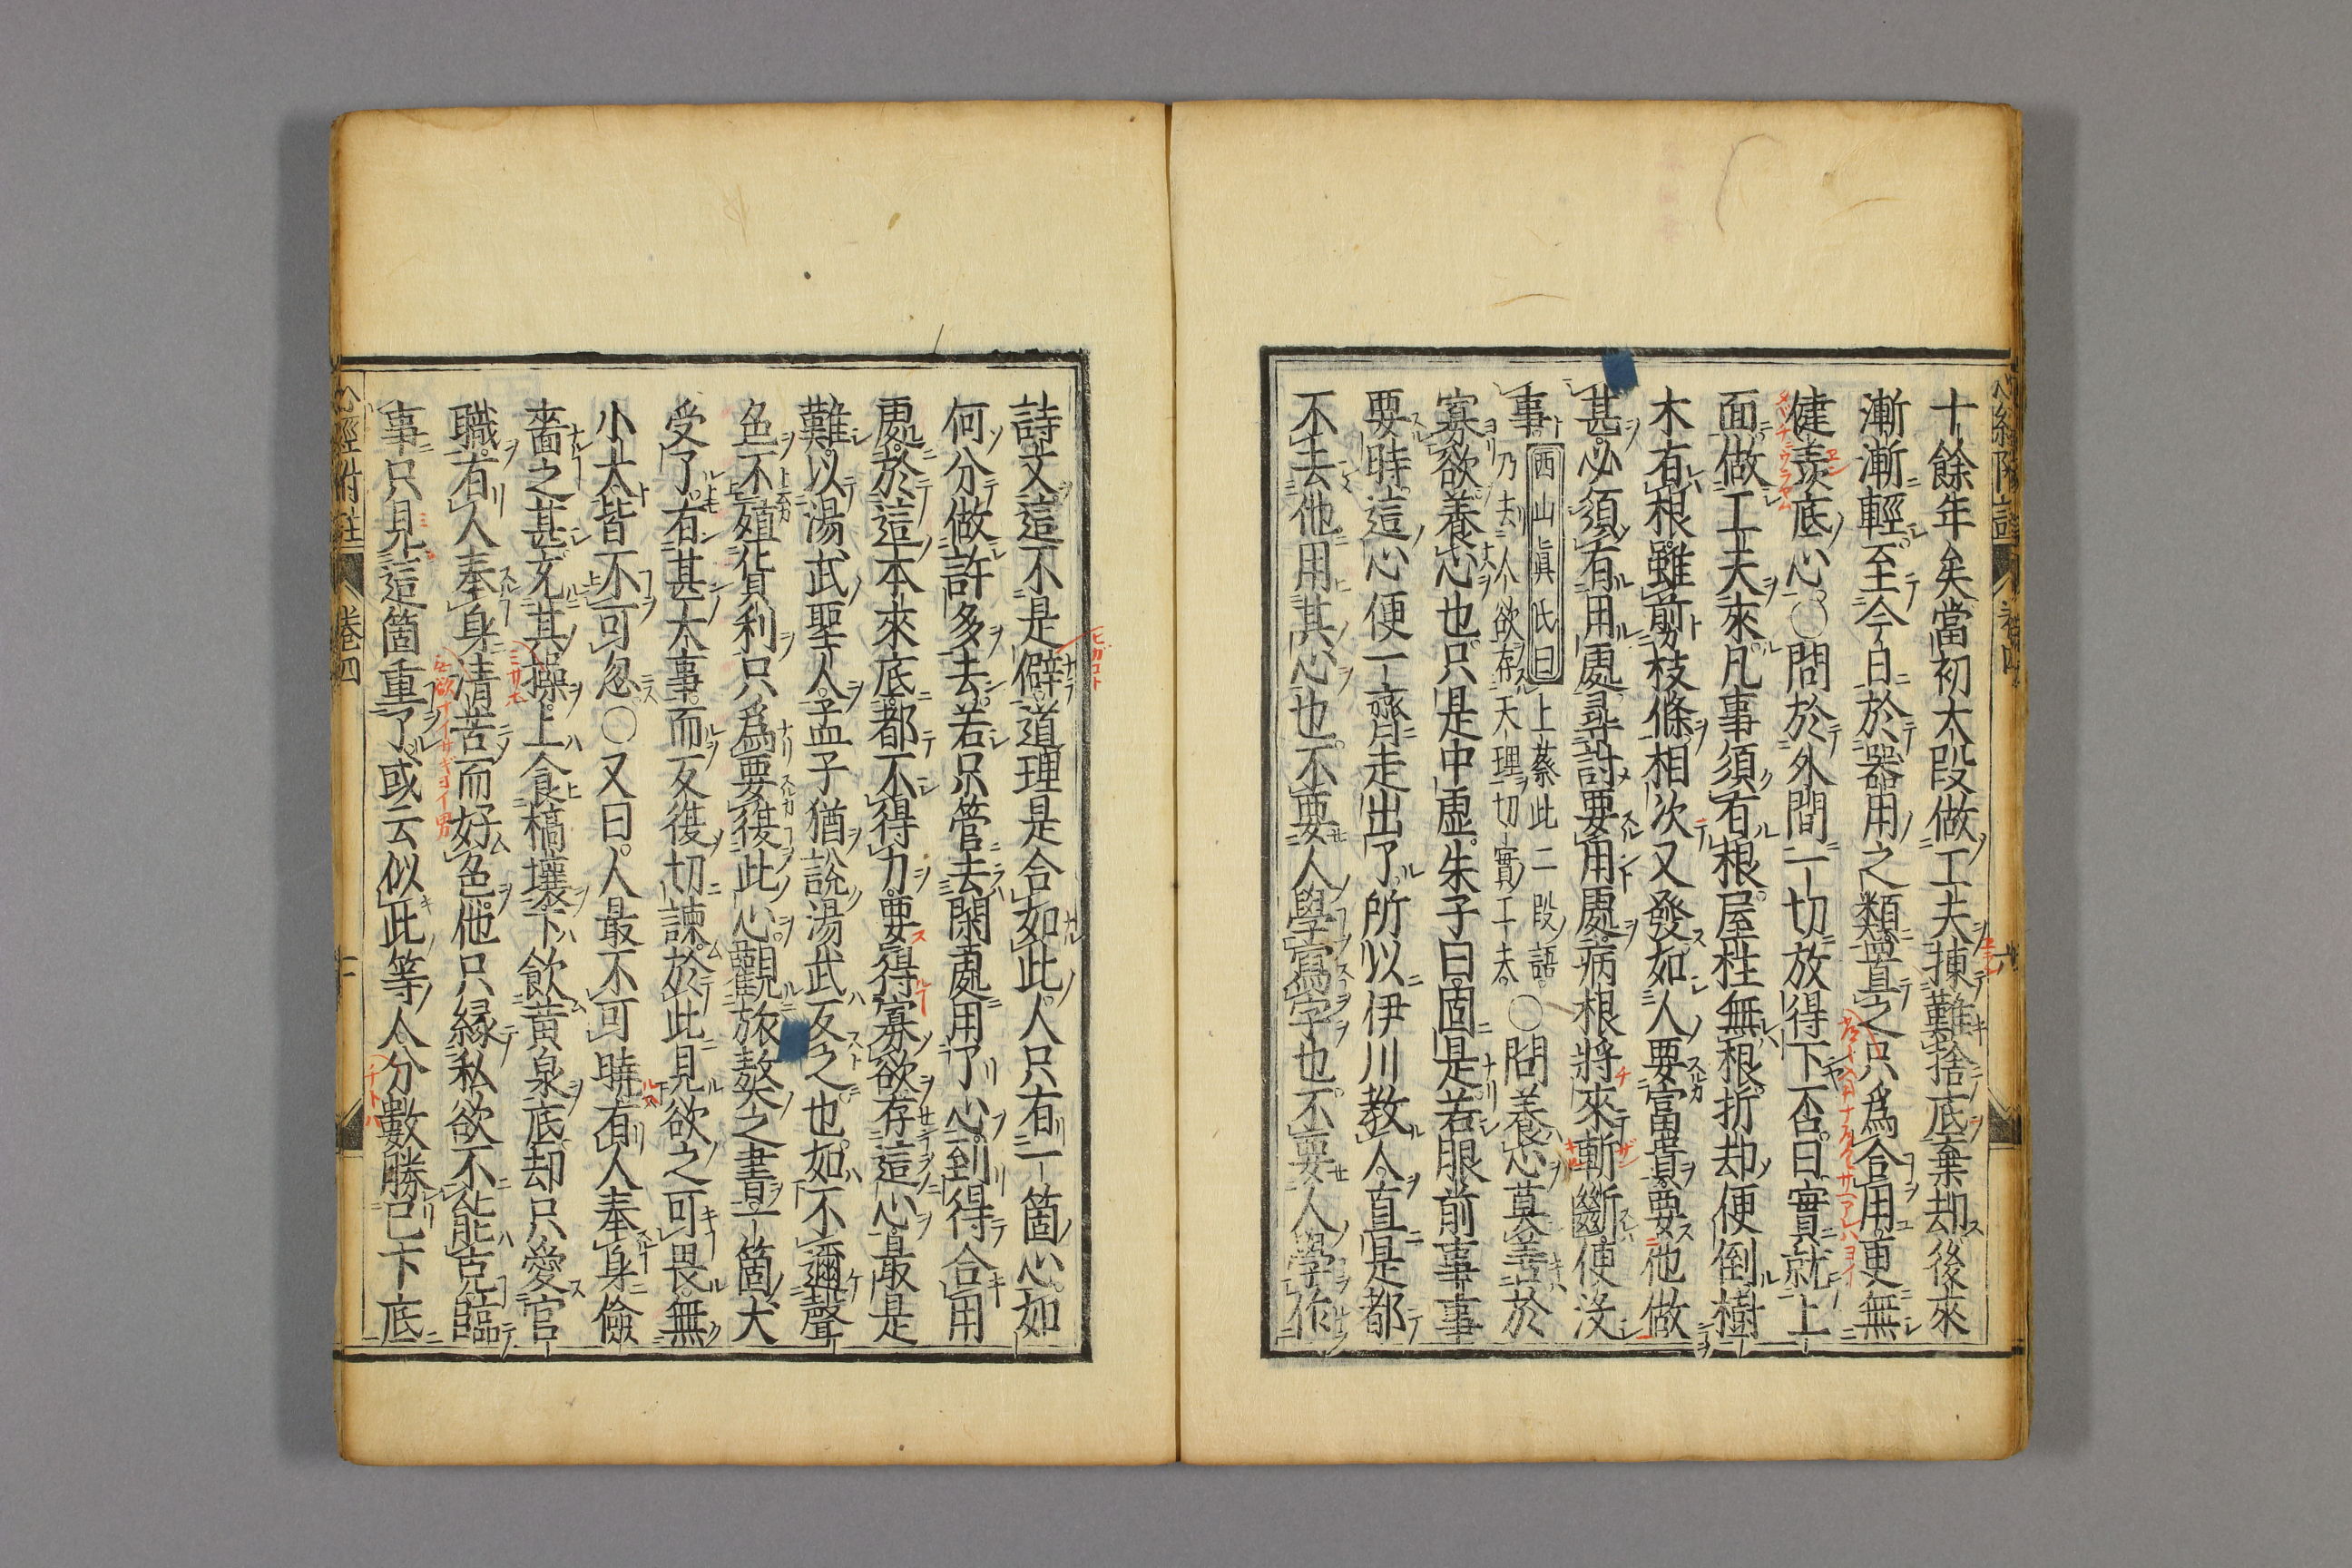 十餘年矣當初大段做工夫揀難捨底棄却後來
漸漸輕至今日於器用之類置之只爲合用更無
健羨底心○問於外間一切放得下否曰實就上
面做工夫來凡事須有根屋柱無根折却便倒樹
木有根雖剪枝條相次又發如人要富貴要他做
甚必須有用處尋討要用處病根將來斬斷便沒
事
西山眞氏曰上蔡此二段語
乃去人欲存天理切實工夫
○問養心莫善於
寡欲養心也只是中虛朱子曰固是若眼前事事
要時這心便一齊走出了所以伊川教人直是都
不去他用其心也不要人學寫字也不要人學作
詩文這不是僻道理是合如此人只有一箇心如
何分做許多去若只管去閑處用了心到得合用
處於這本來底都不得力要得寡欲存這心最是
難以湯武聖人孟子猶說湯武反之也如不邇聲
色不殖貨利只爲要復此心觀旅獒之書一箇犬
受了有甚大事而反復切諫於此見欲之可畏無
小大皆不可忽○又曰人最不可曉有人奉身儉
嗇之甚充其操上食槁壤下飲黃泉底却只愛官
職有人奉身清苦而好色他只緣私欲不能克臨
事只見這箇重了或云似此等人分數勝已下底
心經附註
卷四